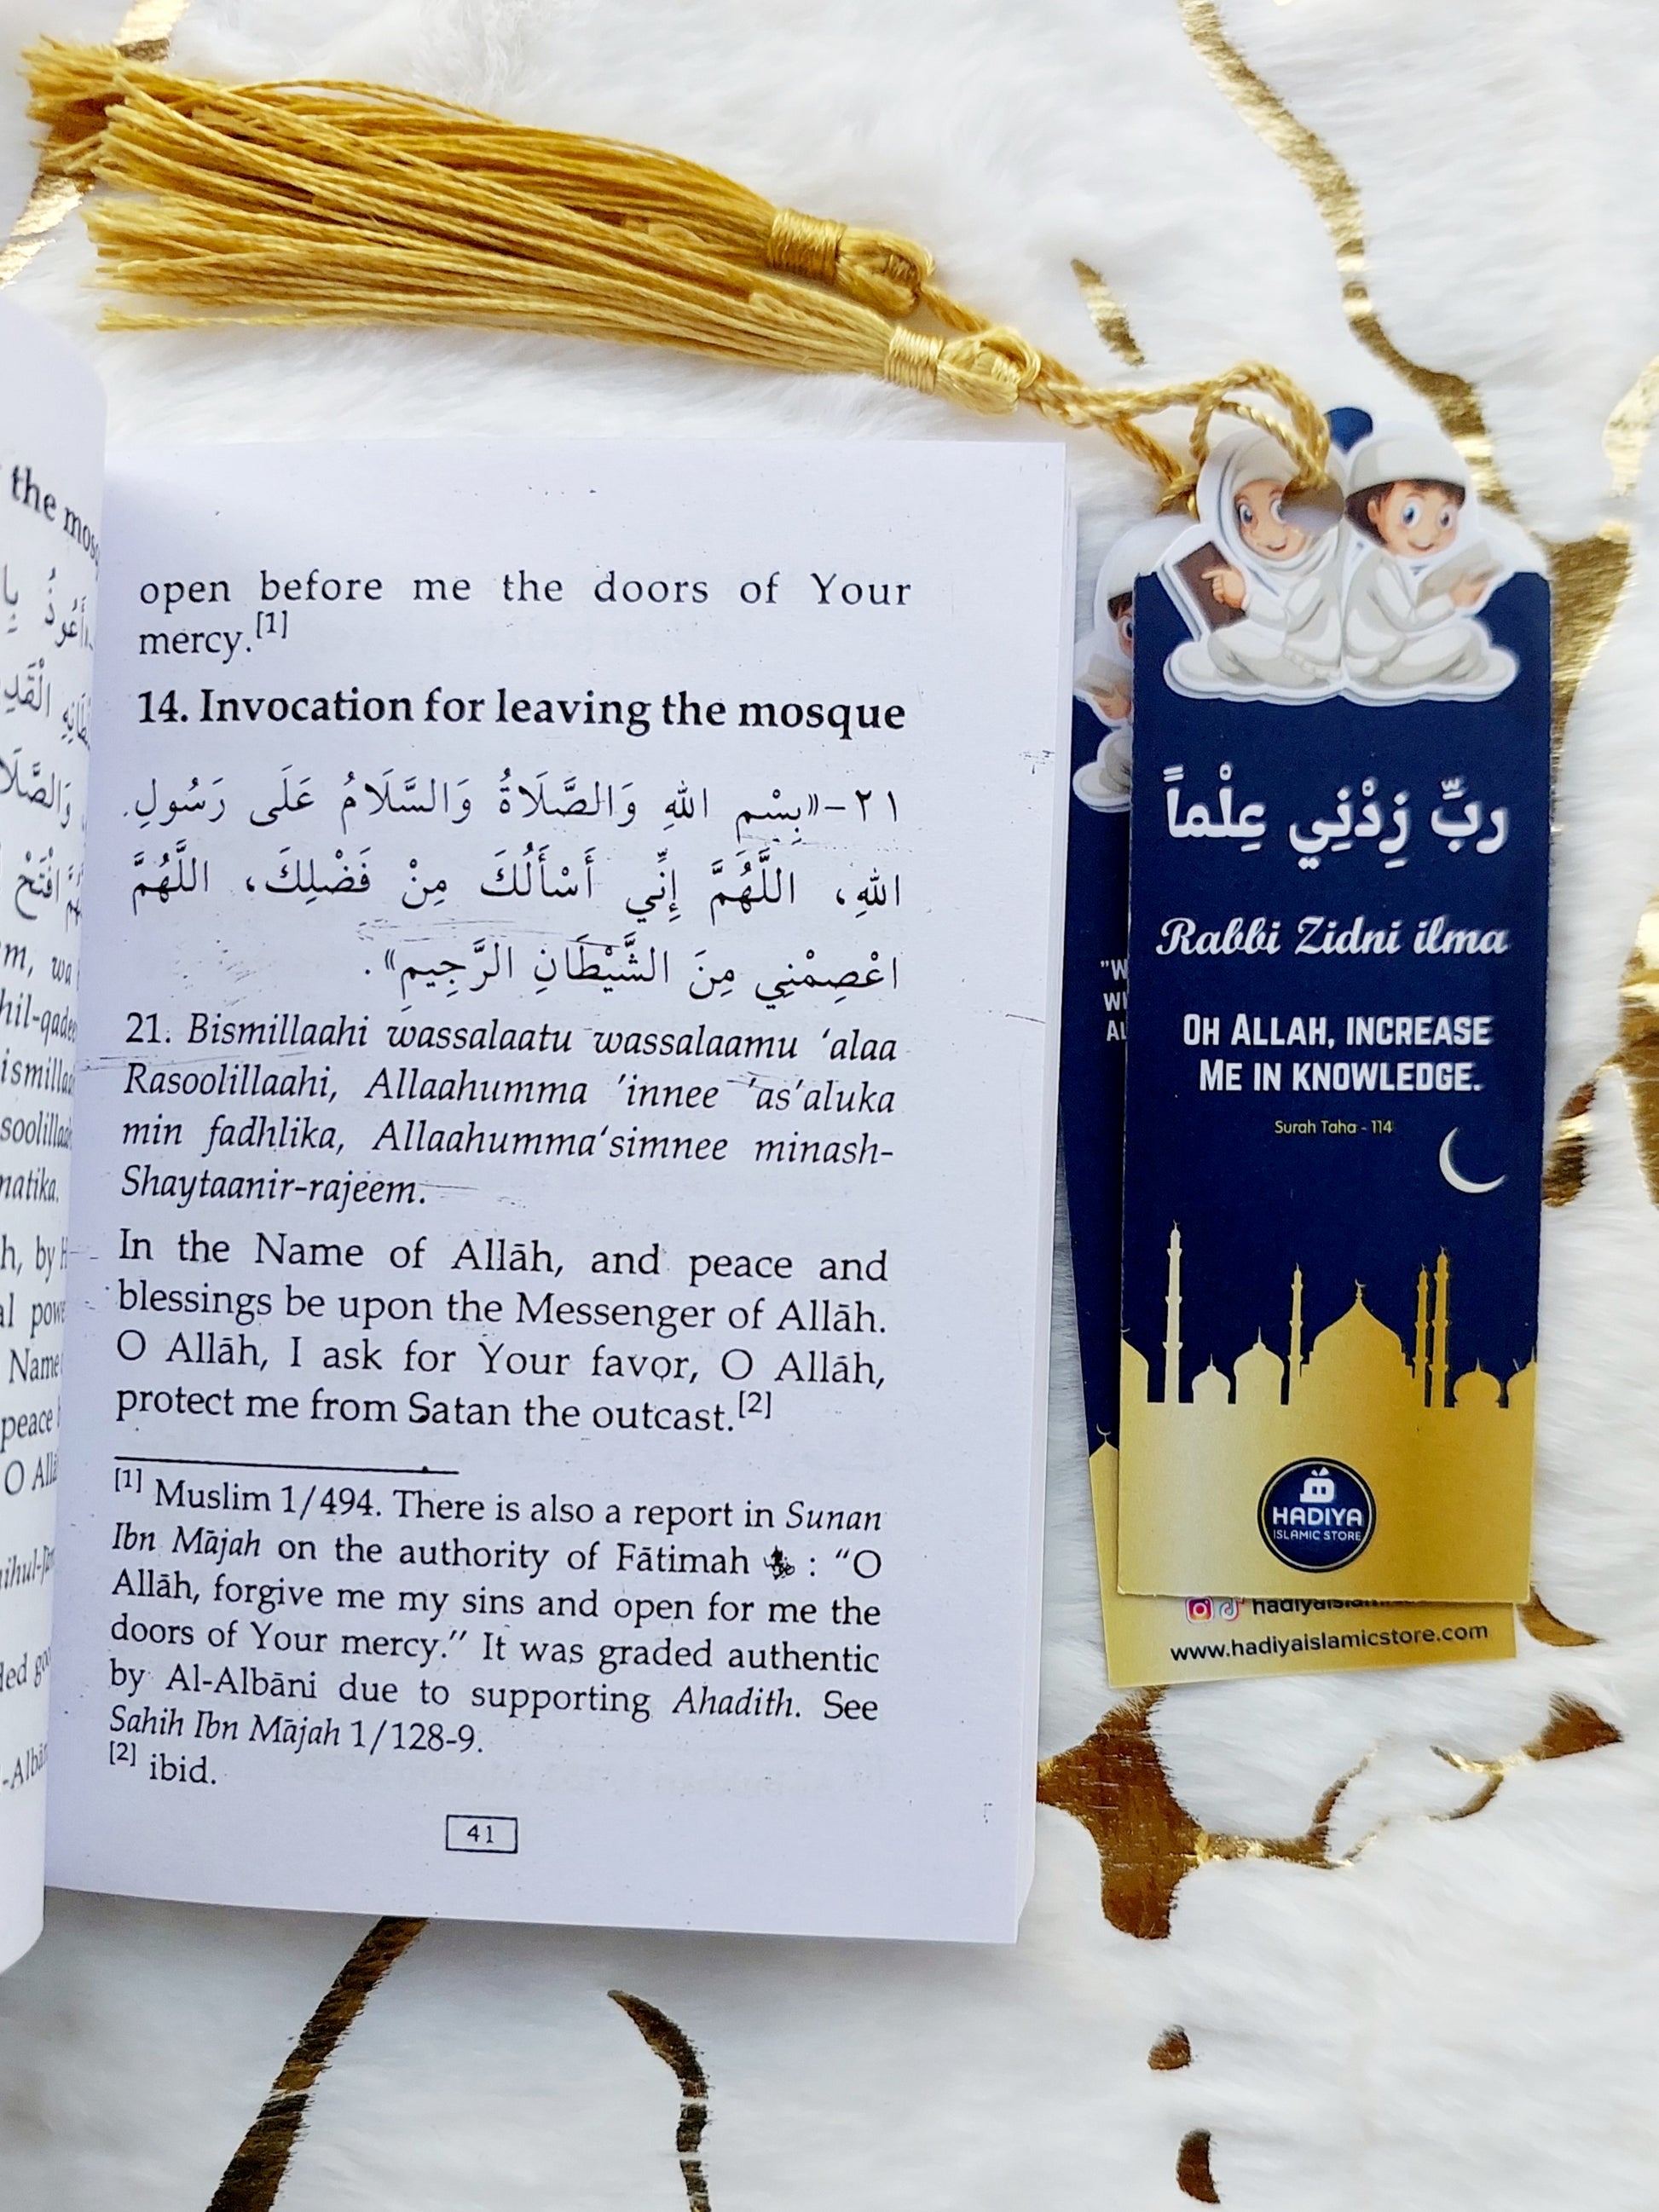 the
أَعُوذُ
الْقَدِ
افْتَحْ
hil-qadee
natika.
h, by H
Name
peace
O Allā
open before me the doors of Your
mercy.[1]
14. Invocation for leaving the mosque
٢١-((بِسْمِ اللهِ وَالصَّلَاةُ وَالسَّلَامُ عَلَى رَسُولِ
اللهِ، اللَّهُمَّ إِنِّي أَسْأَلُكَ مِنْ فَضْلِكَ، اللَّهُمَّ
اعْصِمْنِي مِنَ الشَّيْطَانِ الرَّجِيمِ)).
21. Bismillaahi wassalaatu wassalaamu ‘alaa
Rasoolillaahi, Allaahumma ’innee ’as’aluka
min fadhlika, Allaahumma‘simnee minash-
Shaytaanir-rajeem.
In the Name of Allāh, and peace and
blessings be upon the Messenger of Allāh.
O Allāh, I ask for Your favor, O Allāh,
protect me from Satan the outcast.[2]
[1] Muslim 1/494. There is also a report in Sunan
Ibn Mājah on the authority of Fātimah : “O
Allāh, forgive me my sins and open for me the
doors of Your mercy.” It was graded authentic
by Al-Albāni due to supporting Ahadith. See
Sahih Ibn Mājah 1/128-9.
[2] ibid.
41
ربِّ زِدْنِي عِلْماً
Rabbi Zidni ilma
OH ALLAH, INCREASE
ME IN KNOWLEDGE.
Surah Taha - 114
HADIYA
ISLAMIC STORE
www.hadiyaislamicstore.com